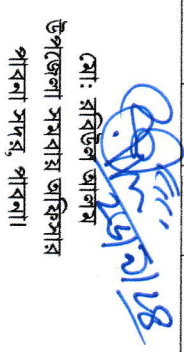 মো: রবিউল আলম
উপজেলা সমবায় অফিসার
পাবনা সদর, পাবনা।